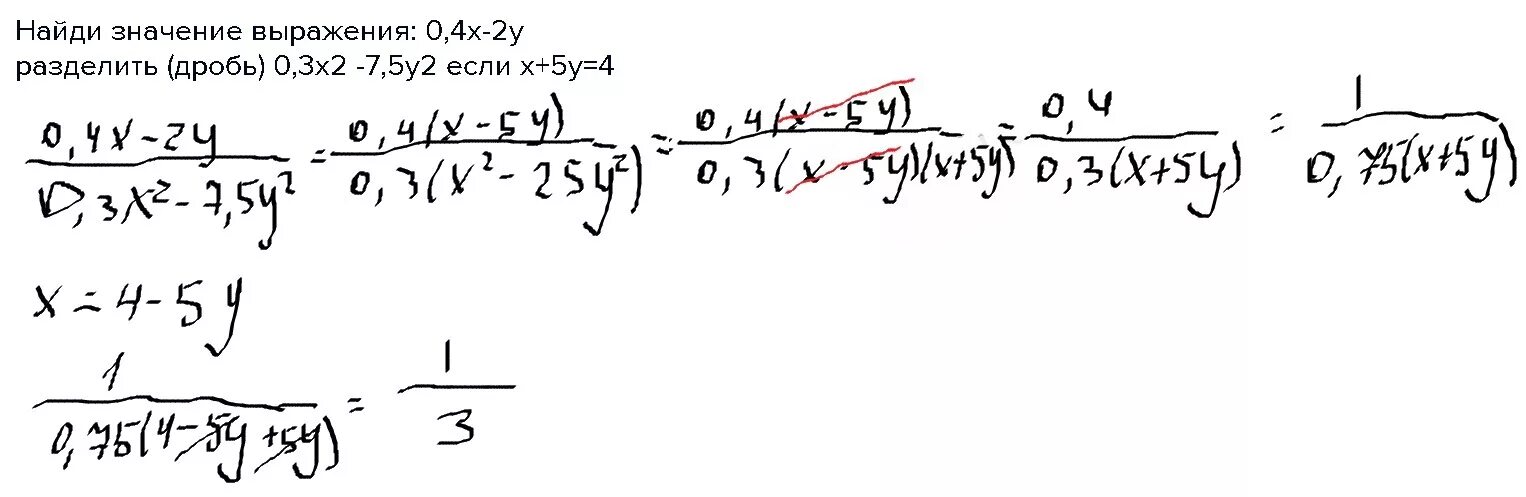 Найди значение выражения: 0,4x-2y
разделить (дробь) 0,3x2 -7,5y2 если x+5y=4
(0,4x-2y)/(0,3x²-7,5y²) = (0,4(x-5y))/(0,3(x²-25y²)) = (0,4(x-5y))/(0,3(x-5y)(x+5y)) = (0,4)/(0,3(x+5y)) = 1/(0,75(x+5y))
x=4-5y
1/(0,75(4-5y+5y)) = 1/3